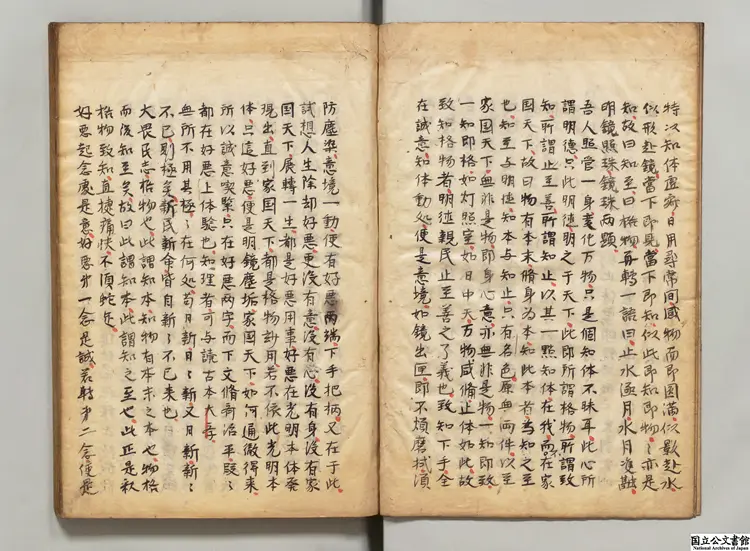 特以知体虚齐日用尋常间感物而即圆满似影赴水
似形赴鏡當下即見當下即知似此即知即物〻亦是
知故曰知至曰格物再轉一語曰止水逐月水月准融
明鏡照珠鏡珠两顆
吾人照管一身叅化万物只是個知体不昧耳此心所
謂明德只此明德明之于天下此即所謂格物所謂致
知所謂止至善所謂知止以其一點知体在我而在家
国天下故曰物有本末脩身为本知此本者當知之至
也知至与明德知本与知止只有名色原無两件以至
家国天下無非是物即身心意亦無非是物一知即致
一知即格如灯照室如日中天万物咸脩正体如此故
致知格物者明德親民止至善之了義也致知下手全
在誠意知体動处便是意境如鏡出匣即不煩磨拭湏
防塵染意境一動便有好惡两端下手把柄又在于此
試想人生除却好惡更沒有意沒有心沒有身沒有家
国天下展轉一生都是好惡用事好惡在光明本体發
現出直到家国天下都是格物妙用若不依此光明本
体只這好惡便是明鏡塵垢家国天下如何通徹得来
所以誠意喫緊只在好惡两字而下文脩齐治平叚〻
都在好惡上体騐也知理者可与讀古本大学
無所不用其極〻在何处苟日新日〻新又日新新〻
不已則極矣新民新命皆自新〻不已来也
大畏民志格物也此謂知本知物有本末之本也物格
而後知至矣故曰此謂知本此謂知之至也此正是秋
格物致知直捷痛快不湏蛇足
好惡起念處是意好惡第一念是誠若轉第二念便是
国立公文書館
National Archives of Japan